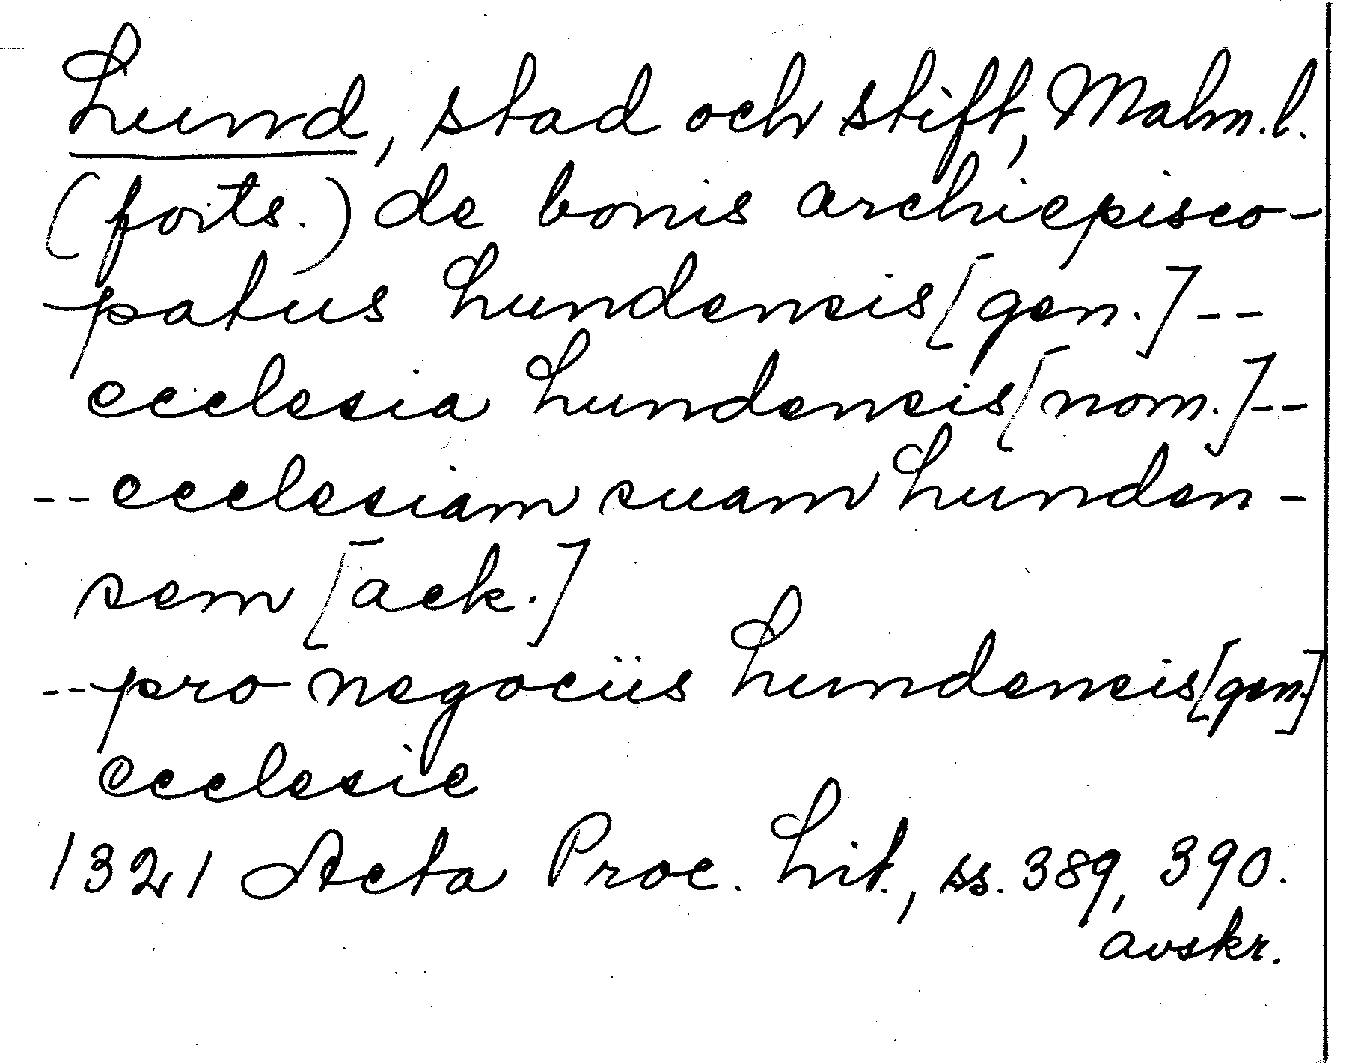 Lund, stad och stift, Malm.l.
(forts.) de bonis archiepisco-
patus Lundensis [gen.] --
ecclesia Lundensis [nom.] --
-- ecclesiam suam Lunden-
sem [ack.]
-- pro negociis Lundensis [gen.]
ecclesie
1321 Acta Proc. Lit., ss. 389, 390.
avskr.